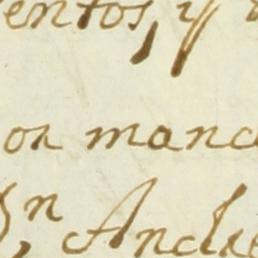 entos, y
on manc
n Andre